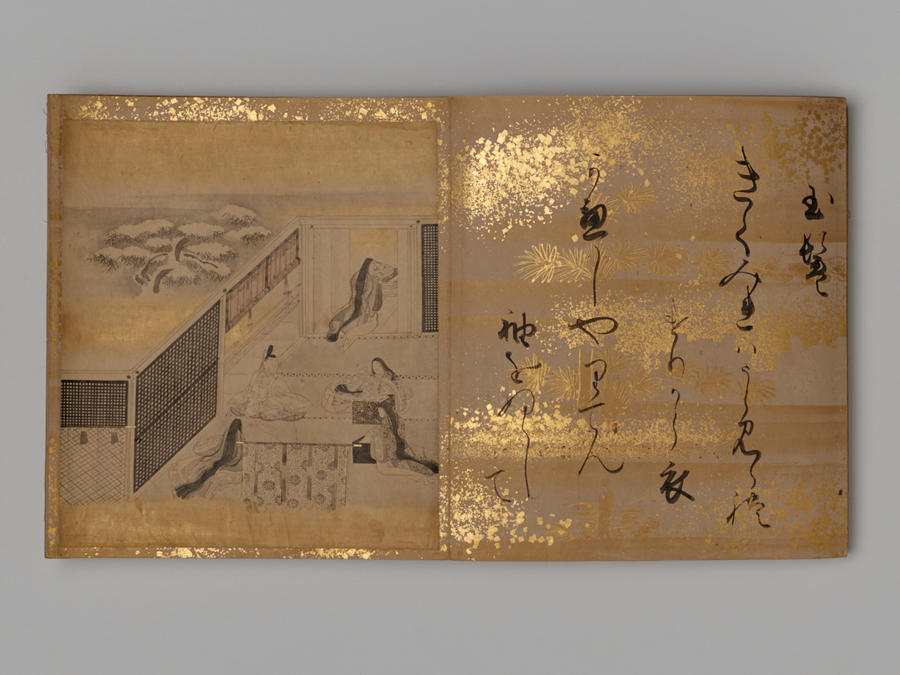 玉鬘
きてみれはうらみられ
けりから衣
かへしやりてん
袖をぬらして